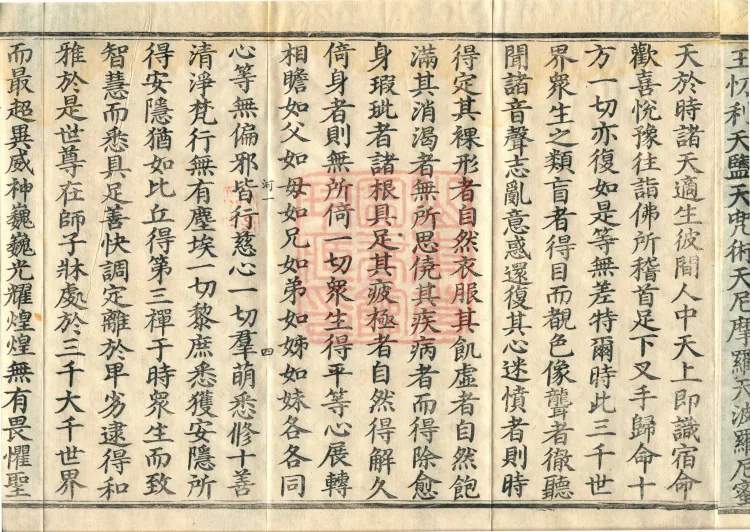 王忉利天鹽天兜術天尼摩羅天波羅尼蜜
天於時諸天適生彼間人中天上即識宿命
歡喜悅豫往詣佛所稽首足下叉手歸命十
方一切亦復如是等無差特爾時此三千世
界眾生之類盲者得目而覩色像聾者徹聽
聞諸音聲志亂意惑還復其心迷憒者則時
得定其裸形者自然衣服其飢虛者自然飽
滿其消渴者無所思僥其疾病者而得除愈
身瑕玼者諸根具足其疲極者自然得解久
倚身者則無所倚一切眾生得平等心展轉
相瞻如父如母如兄如弟如姊如妹各各同
河一 四
心等無偏邪皆行慈心一切羣萌悉修十善
清淨梵行無有塵埃一切黎庶悉獲安隱所
得安隱猶如比丘得第三禪于時眾生而致
智慧而悉具足善快調定離於卑劣逮得和
雅於是世尊在師子牀處於三千大千世界
而最超異威神巍巍光耀煌煌無有畏懼聖